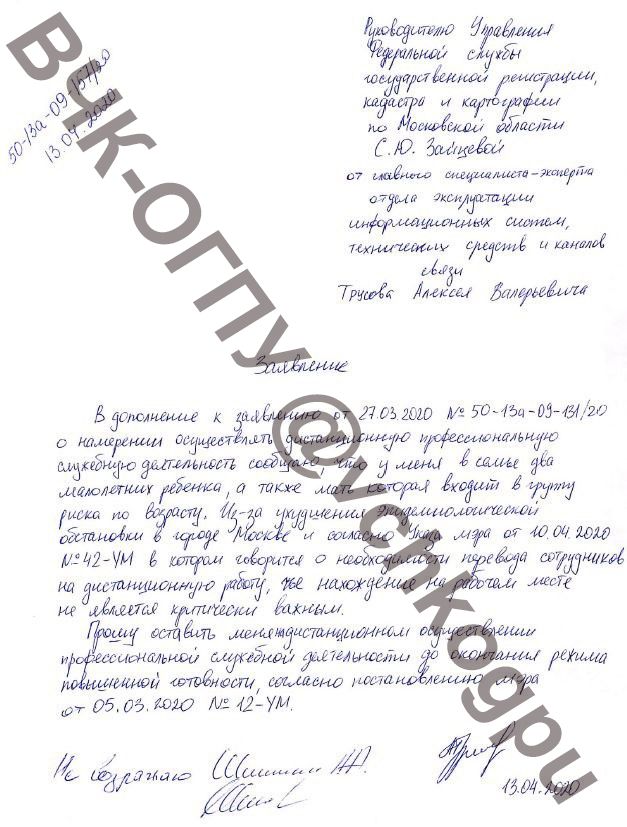 50-13а-09-157/20
13.04.2020
Руководителю Управления
Федеральной службы
государственной регистрации,
кадастра и картографии
по Московской области
С.Ю. Зайцевой
от главного специалиста-эксперта
отдела эксплуатации
информационных систем,
технических средств и каналов
связи
Трусова Алексея Валерьевича
Заявление
В дополнение к заявлению от 27.03.2020 № 50-13а-09-131/20
о намерении осуществлять дистанционную профессиональную
служебную деятельность сообщаю, что у меня в семье два
малолетних ребенка, а также мать которая входит в группу
риска по возрасту. Из-за ухудшения эпидемиологической
обстановки в городе Москве и согласно Указа мэра от 10.04.2020
№42-УМ в котором говорится о необходимости перевода сотрудников
на дистанционную работу, чье нахождение на рабочем месте
не является критически важным.
Прошу оставить меня дистанционном осуществлении
профессиональной служебной деятельности до окончания режима
повышенной готовности, согласно постановлению мэра
от 05.03.2020 № 12-УМ.
Не возражаю
13.04.2020
ВЧК-ОГПУ @vchkogpu